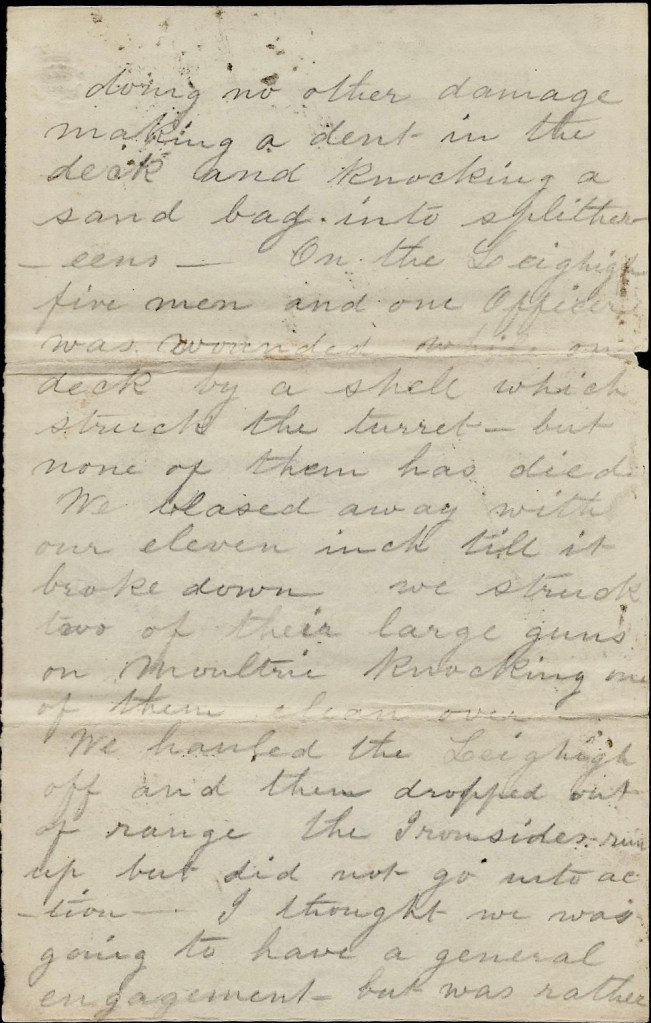 doing no other damage
making a dent in the
deck and knocking a
sand bag into splither-
-eens - On the Leighigh
five men and one Officer
was wounded while on
deck by a shell which
struck the turret - but
none of them has died
We blased away with
our eleven inch till it
broke down we struck
two of their large guns
on Moultrie knocking one
of them clean over -
We hauled the Leighigh
off and then dropped out
of range the Ironsides run
up but did not go into ac
-tion - I thought we was
going to have a general
engagement - but was rather